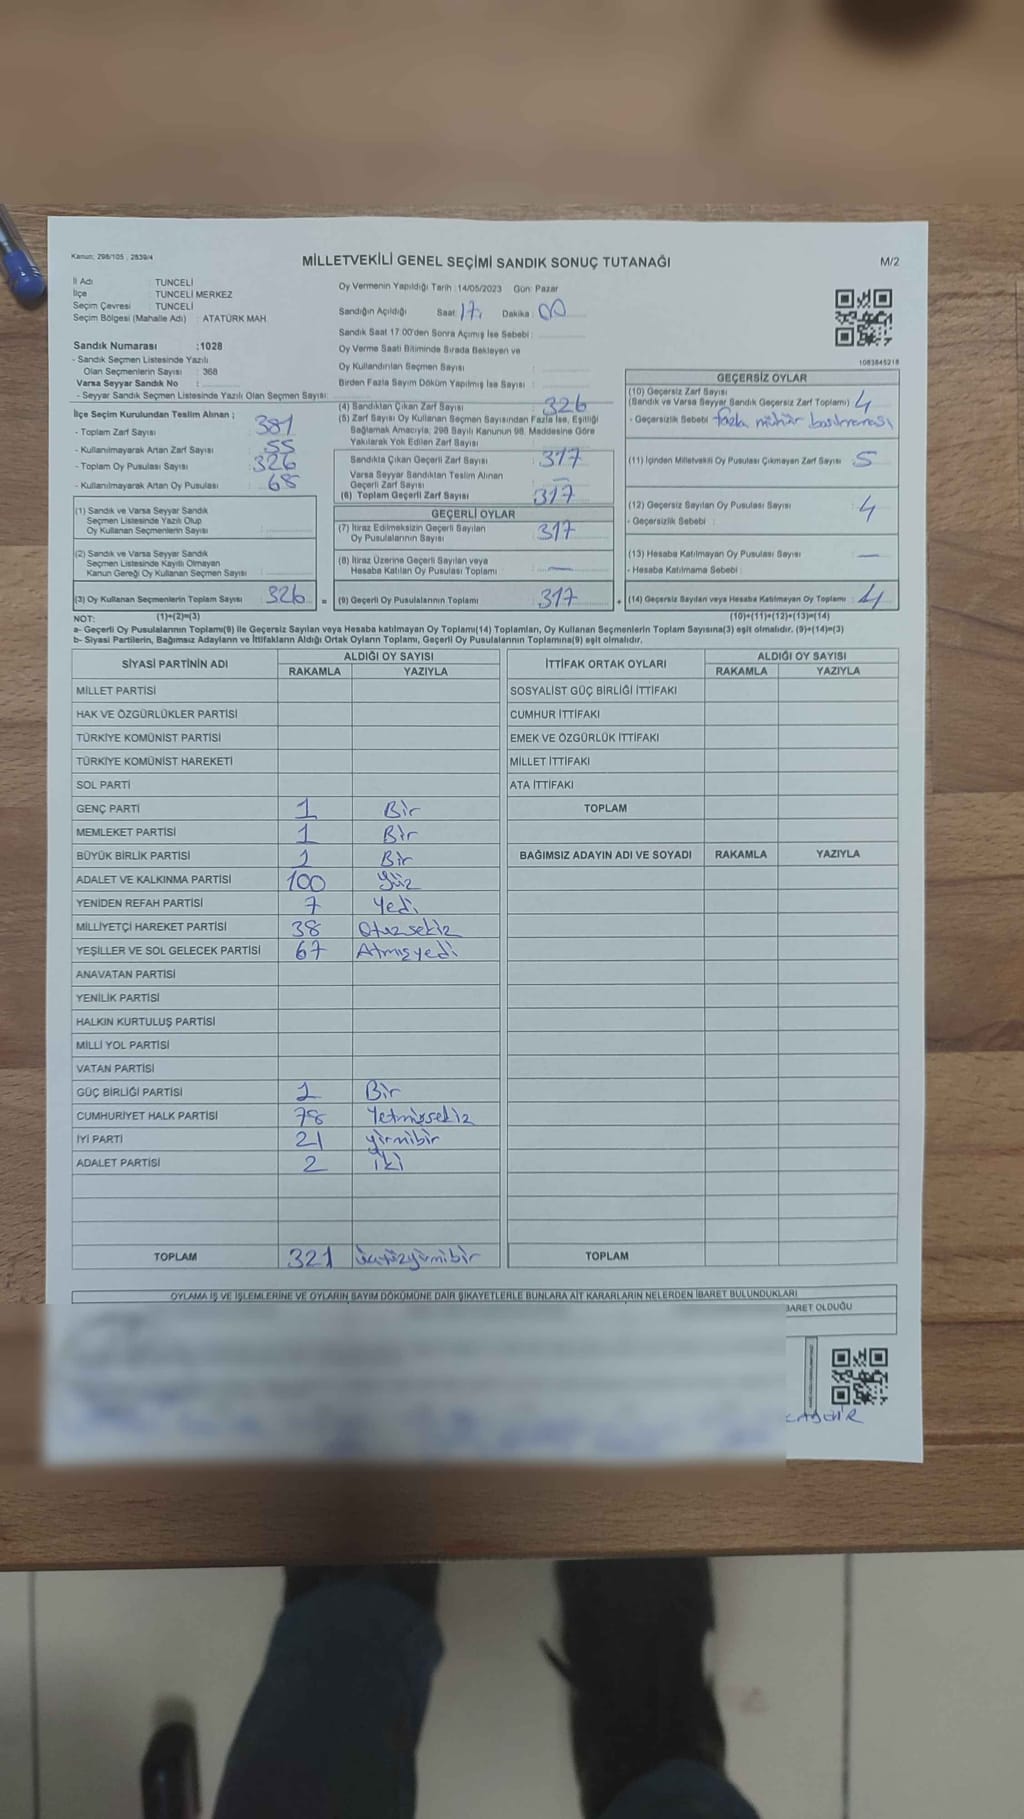 Kanun: 298/105 , 2839/4
MİLLETVEKİLİ GENEL SEÇİMİ SANDIK SONUÇ TUTANAĞI
M/2
İl Adı : TUNCELİ
İlçe : TUNCELİ MERKEZ
Seçim Çevresi : TUNCELİ
Seçim Bölgesi (Mahalle Adı) : ATATÜRK MAH.
Sandık Numarası :1028
- Sandık Seçmen Listesinde Yazılı
Olan Seçmenlerin Sayısı : 368
Varsa Seyyar Sandık No :
- Seyyar Sandık Seçmen Listesinde Yazılı Olan Seçmen Sayısı:
Oy Vermenin Yapıldığı Tarih :14/05/2023 Gün: Pazar
Sandığın Açıldığı Saat 17. Dakika : 00
Sandık Saat 17:00'den Sonra Açımış İse Sebebi :
Oy Verme Saati Bitiminde Sırada Bekleyen ve
Oy Kullandırılan Seçmen Sayısı
Birden Fazla Sayım Döküm Yapılmış İse Sayısı :
1083845218
İlçe Seçim Kurulundan Teslim Alınan ;
- Toplam Zarf Sayısı : 381
- Kullanılmayarak Artan Zarf Sayısı : 55
- Toplam Oy Pusulası Sayısı : 326
- Kullanılmayarak Artan Oy Pusulası : 68
(1) Sandık ve Varsa Seyyar Sandık
Seçmen Listesinde Yazılı Olup
Oy Kullanan Seçmenlerin Sayısı :
(2) Sandık ve Varsa Seyyar Sandık
Seçmen Listesinde Kayıtlı Olmayan
Kanun Gereği Oy Kullanan Seçmen Sayısı :
(3) Oy Kullanan Seçmenlerin Toplam Sayısı : 326 =
(4) Sandıktan Çıkan Zarf Sayısı : 326
(5) Zarf Sayısı Oy Kullanan Seçmen Sayısından Fazla İse, Eşitliği
Sağlamak Amacıyla, 298 Sayılı Kanunun 98. Maddesine Göre
Yakılarak Yok Edilen Zarf Sayısı :
Sandıkta Çıkan Geçerli Zarf Sayısı : 317
Varsa Seyyar Sandıktan Teslim Alınan
Geçerli Zarf Sayısı : —
(6) Toplam Geçerli Zarf Sayısı : 317
GEÇERLİ OYLAR
(7) İtiraz Edilmeksizin Geçerli Sayılan
Oy Pusulalarının Sayısı : 317
(8) İtiraz Üzerine Geçerli Sayılan veya
Hesaba Katılan Oy Pusulası Toplamı : —
(9) Geçerli Oy Pusulalarının Toplamı : 317 +
GEÇERSİZ OYLAR
(10) Geçersiz Zarf Sayısı
(Sandık ve Varsa Seyyar Sandık Geçersiz Zarf Toplamı) : 4
- Geçersizlik Sebebi : fazla mühür basılmaması
(11) İçinden Milletvekili Oy Pusulası Çıkmayan Zarf Sayısı : 5
(12) Geçersiz Sayılan Oy Pusulası Sayısı : 4
- Geçersizlik Sebebi :
(13) Hesaba Katılmayan Oy Pusulası Sayısı : —
- Hesaba Katılmama Sebebi :
(14) Geçersiz Sayılan veya Hesaba Katılmayan Oy Toplamı : 4
NOT: (1)+(2)=(3)
(10)+(11)+(12)+(13)=(14)
a- Geçerli Oy Pusulalarının Toplamı(9) ile Geçersiz Sayılan veya Hesaba katılmayan Oy Toplamı(14) Toplamları, Oy Kullanan Seçmenlerin Toplam Sayısına(3) eşit olmalıdır. (9)+(14)=(3)
b- Siyasi Partilerin, Bağımsız Adayların ve İttifakların Aldığı Ortak Oyların Toplamı, Geçerli Oy Pusulalarının Toplamına(9) eşit olmalıdır.
SİYASİ PARTİNİN ADI ALDIĞI OY SAYISI
RAKAMLA YAZIYLA
MİLLET PARTİSİ
HAK VE ÖZGÜRLÜKLER PARTİSİ
TÜRKİYE KOMÜNİST PARTİSİ
TÜRKİYE KOMÜNİST HAREKETİ
SOL PARTİ
GENÇ PARTİ 1 Bir
MEMLEKET PARTİSİ 1 Bir
BÜYÜK BİRLİK PARTİSİ 1 Bir
ADALET VE KALKINMA PARTİSİ 100 Yüz
YENİDEN REFAH PARTİSİ 7 Yedi
MİLLİYETÇİ HAREKET PARTİSİ 38 Otuzsekiz
YEŞİLLER VE SOL GELECEK PARTİSİ 67 Atmışyedi
ANAVATAN PARTİSİ
YENİLİK PARTİSİ
HALKIN KURTULUŞ PARTİSİ
MİLLİ YOL PARTİSİ
VATAN PARTİSİ
GÜÇ BİRLİĞİ PARTİSİ 1 Bir
CUMHURİYET HALK PARTİSİ 78 Yetmişsekiz
İYİ PARTİ 21 yirmibir
ADALET PARTİSİ 2 iki
TOPLAM 321 üçyüzyirmibir
İTTİFAK ORTAK OYLARI ALDIĞI OY SAYISI
RAKAMLA YAZIYLA
SOSYALİST GÜÇ BİRLİĞİ İTTİFAKI
CUMHUR İTTİFAKI
EMEK VE ÖZGÜRLÜK İTTİFAKI
MİLLET İTTİFAKI
ATA İTTİFAKI
TOPLAM
BAĞIMSIZ ADAYIN ADI VE SOYADI RAKAMLA YAZIYLA
TOPLAM
OYLAMA İŞ VE İŞLEMLERİNE VE OYLARIN SAYIM DÖKÜMÜNE DAİR ŞİKAYETLERLE BUNLARA AİT KARARLARIN NELERDEN İBARET BULUNDUKLARI
BARET OLDUĞU